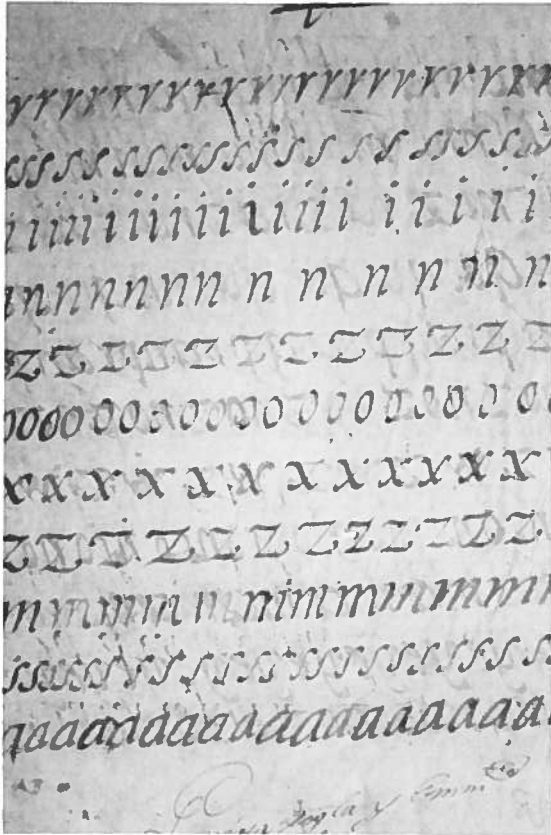 r r r r r r r r r r r r r r r r r r r r r
s s s s s s s s s s s s s s s s s s s s s
i i i i i i i i i i i i i i i i i i i i i
n n n n n n n n n n n n n
z z z z z z z z z z z z
o o o o o o o o o o o o o o o o o o o o
x x x x x x x x x x x x
z z z z z z z z z z z z
m m m m m m m m m m m
s s s s s s s s s s s s s s s s s s s s
a a a a a a a a a a a a a a a a a a